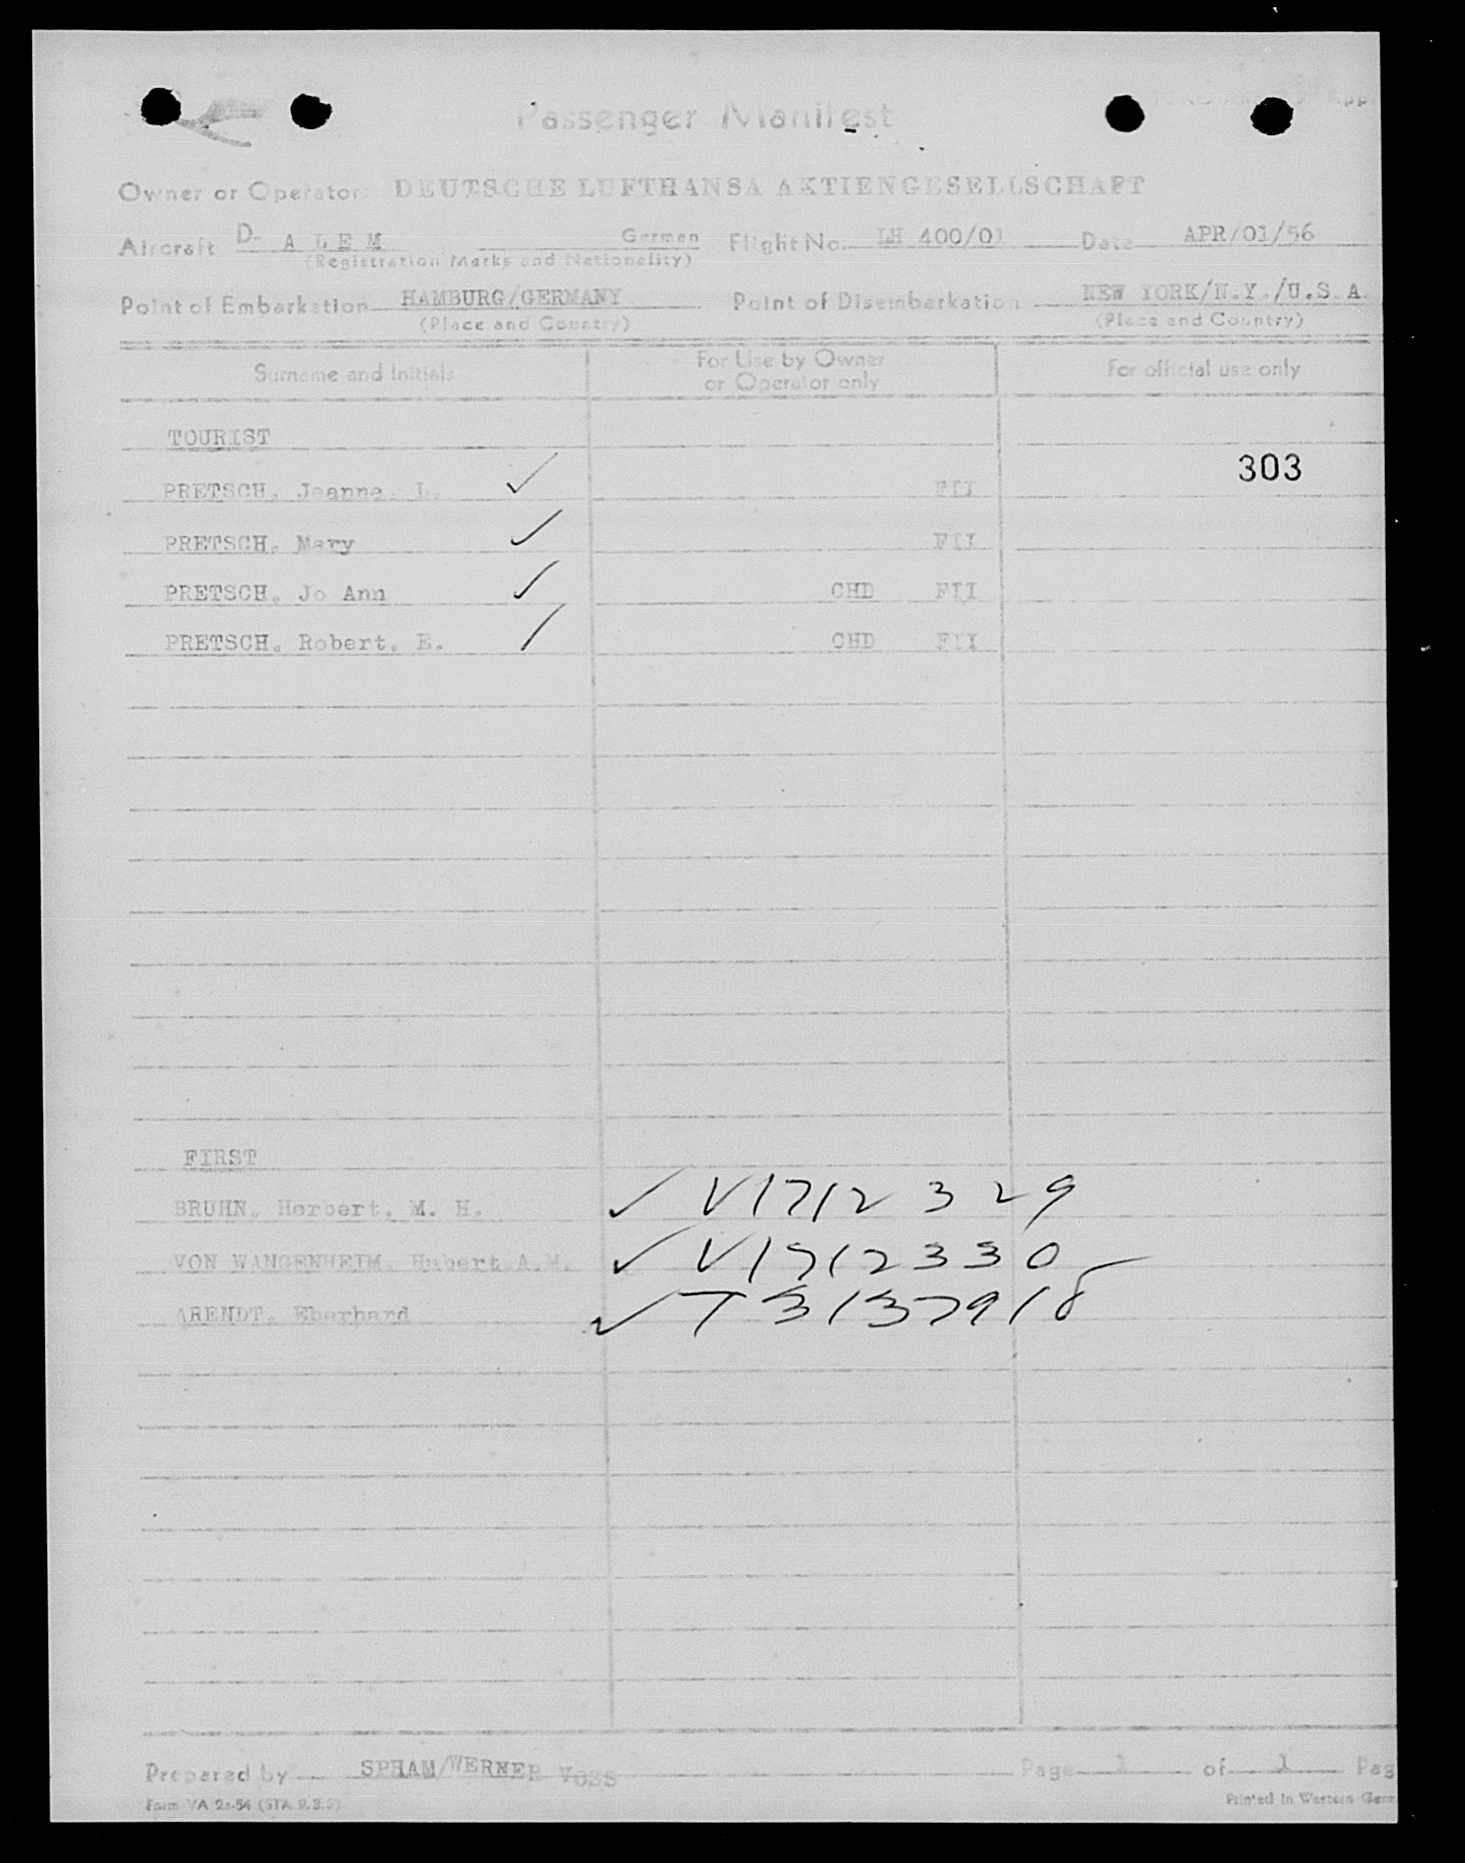 Passenger Manifest
Owner or Operator: DEUTSCHE LUFTHANSA AKTIENGESELLSCHAFT
Aircraft D- A L E M German Flight No. LH 400/01 Date APR/01/56
(Registration Marks and Nationality)
Point of Embarkation HAMBURG/GERMANY Point of Disembarkation NEW YORK/N.Y./U.S.A.
(Place and Country) (Place and Country)
Surname and Initials For Use by Owner or Operator only For official use only
TOURIST
303
PRETSCH, Jeanne, L. ✓ FII
PRETSCH, Mary ✓ FII
PRETSCH, Jo Ann ✓ CHD FII
PRETSCH, Robert, E. / CHD FII
FIRST
BRUHN, Herbert, M. H. ✓ V1712329
VON WANGENHEIM, Hubert A.M. ✓ V1712330
ARENDT, Eberhard ✓ T3137918
Prepared by SPHAM/WERNER VOSS Page 1 of 1 Pag
Form VA 2a-54 Printed in Western Germ